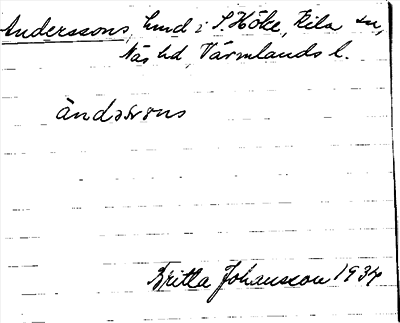 Anderssons, lund i S. Höke, Kila sn,
Näs hd, Värmlands l.
àndəṣons
Britta Johansson 1934